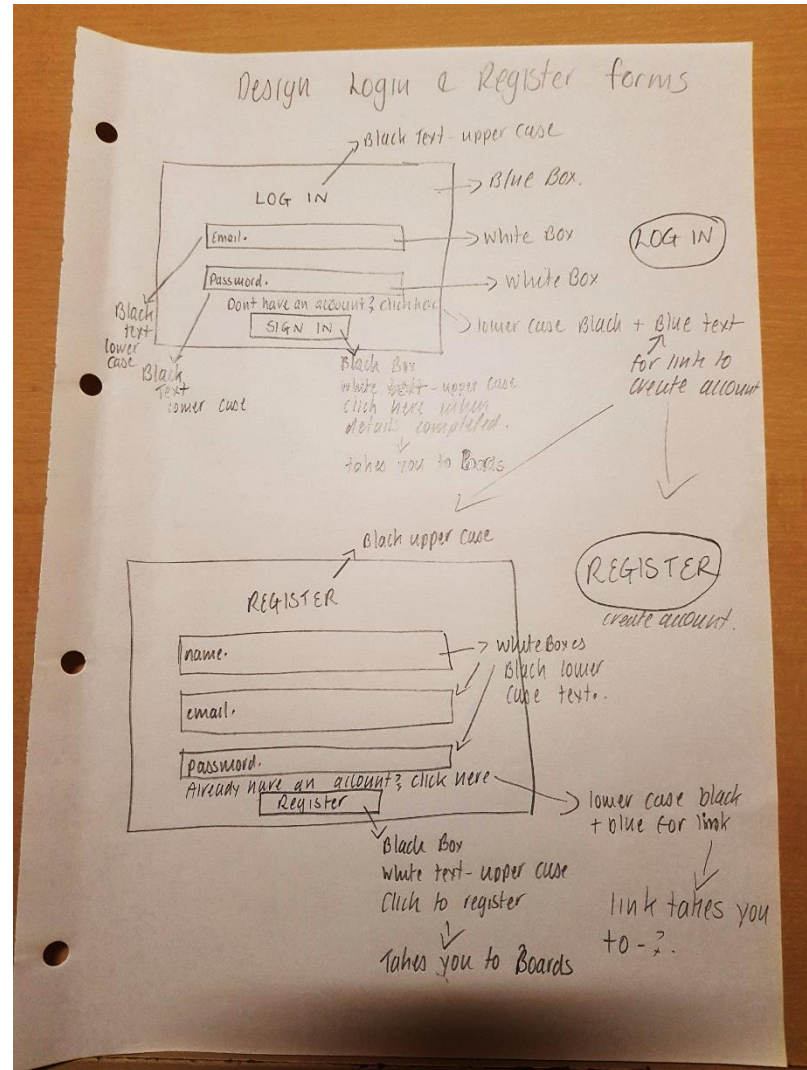 Design Login & Register forms
Black Text - upper case
Blue Box.
LOG IN
Email.
White Box
LOG IN
Password.
White Box
Dont have an account? click here
SIGN IN
lower case Black + Blue text
for link to
create account
Black
text
lower
case
Black
Text
lower case
Black Box
white text - upper case
click here when
details completed.
takes you to Boards
Black upper case
REGISTER
REGISTER
create account.
name.
White Boxes
Black lower
case text..
email.
password.
Already have an account? click here
Register
lower case black
+ blue for link
Black Box
white text - upper case
Click to register
link takes you
to - ?.
Takes you to Boards